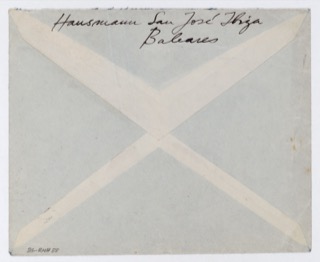 Hausmann San José Ibiza
Baleares